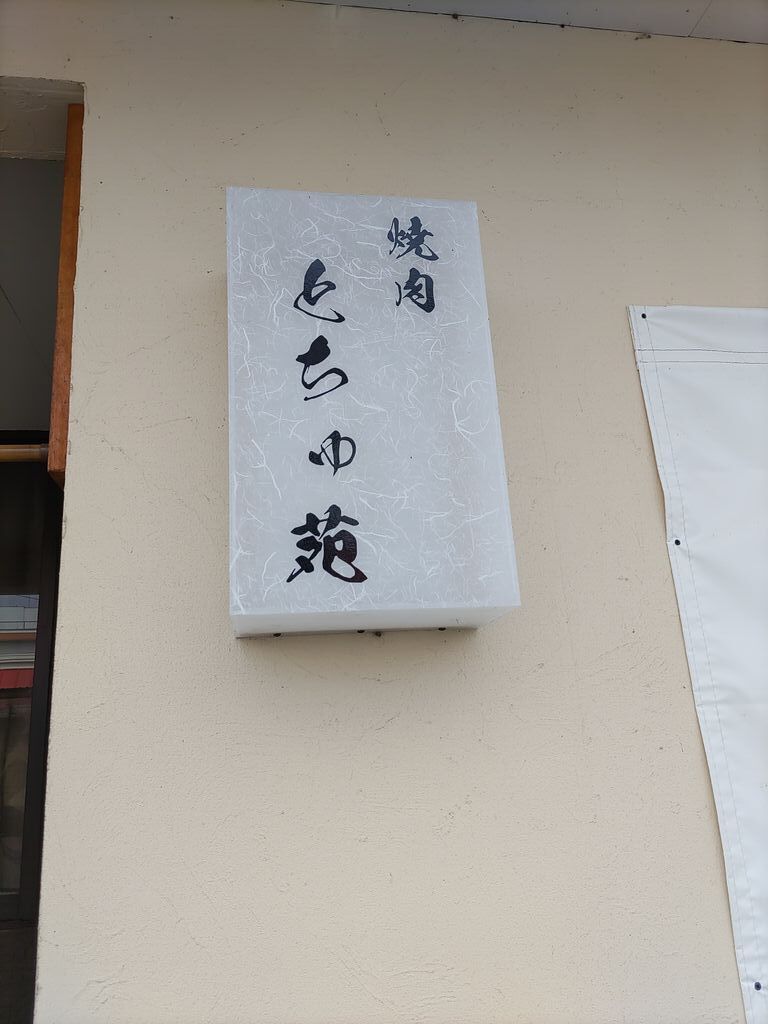 焼肉
とちゅ苑